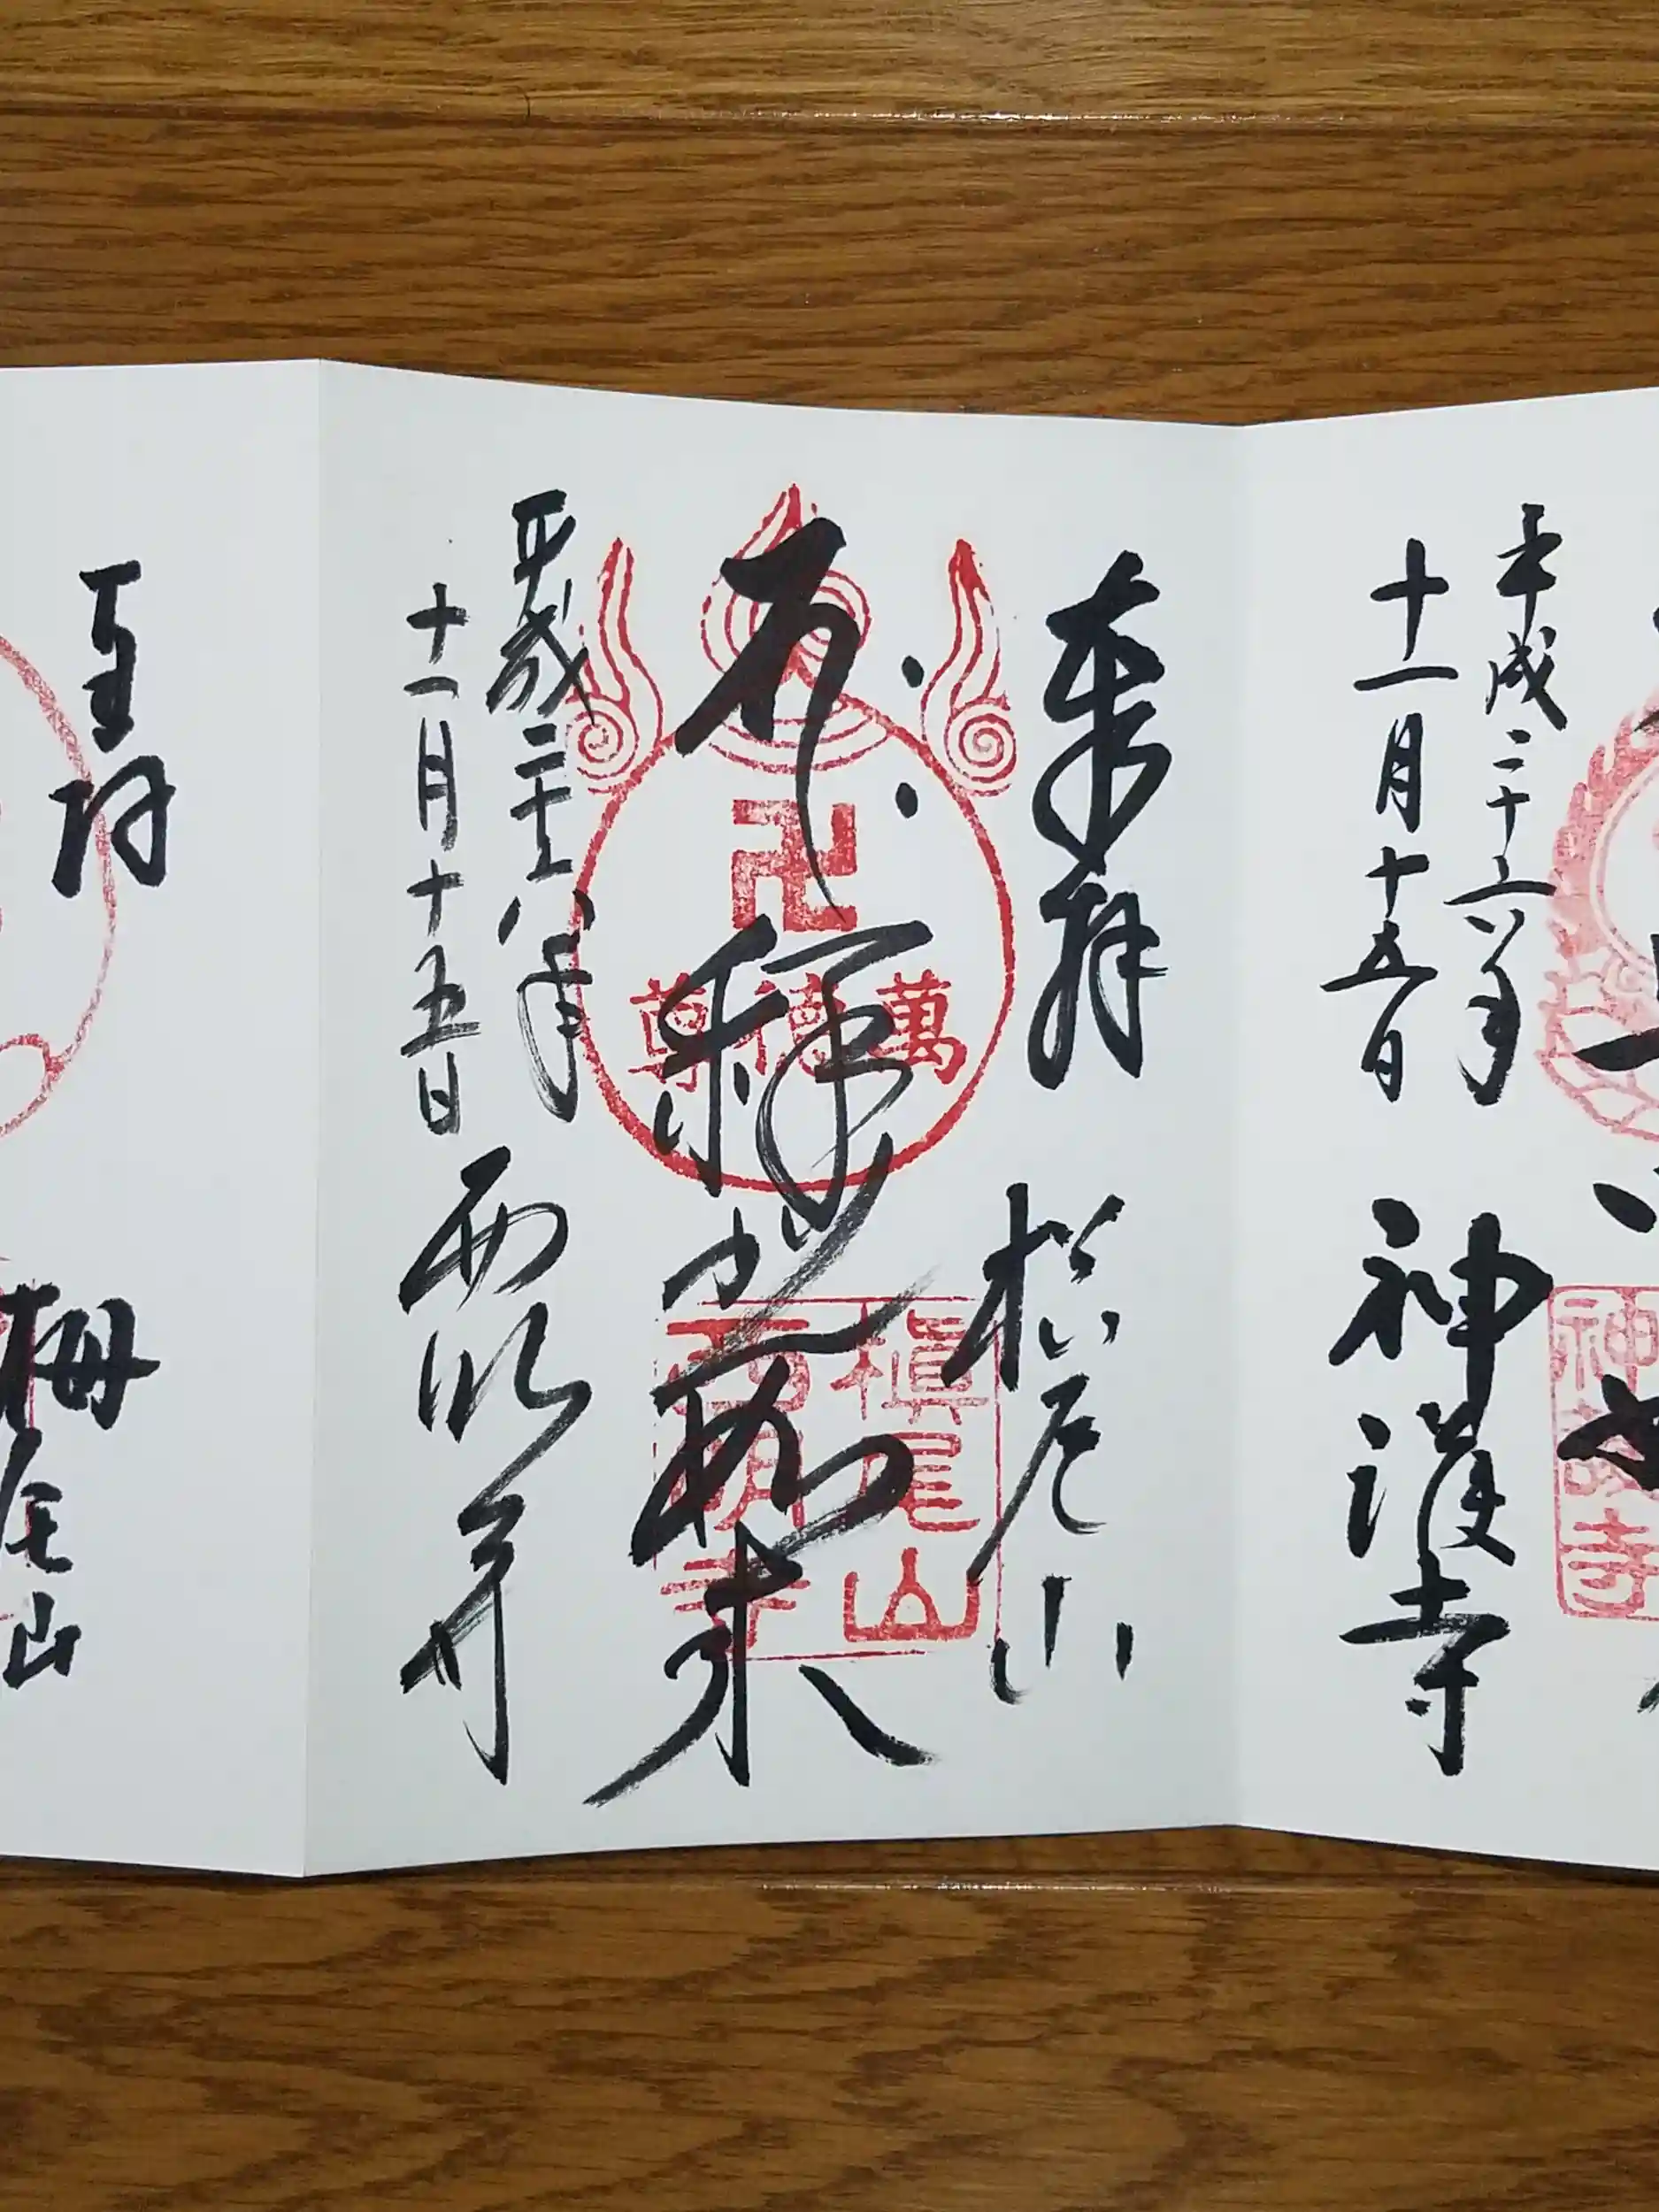 平成二十八年
十一月十五日
神護寺
神護寺
奉拝
槙尾山
釈迦如来
卍
萬徳尊
槇尾山
西明寺
平成二十八年
十一月十五日
西明寺
奉拝
栂尾山